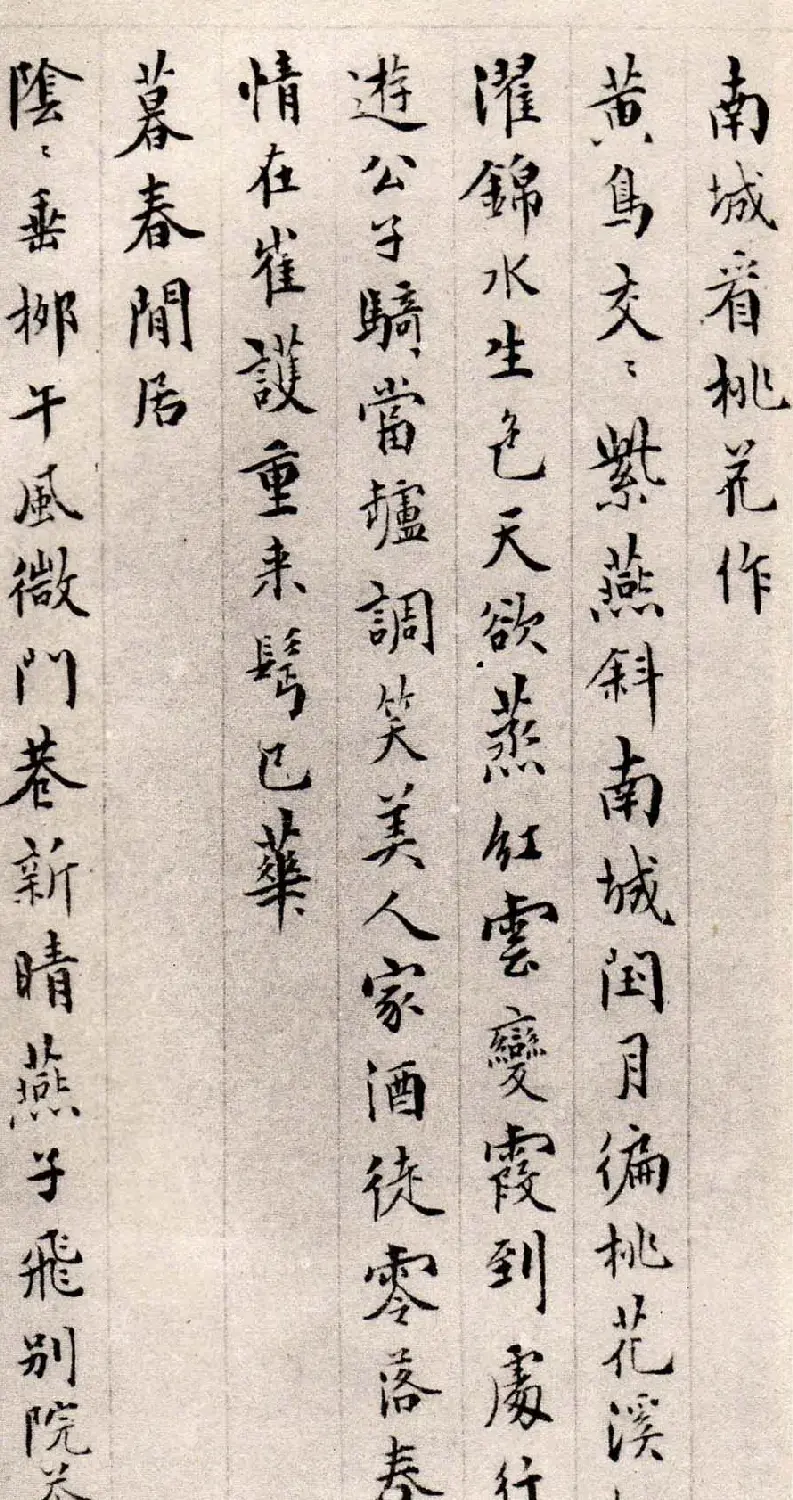 南城看桃花作
黄鳥交〻紫燕斜南城閏月徧桃花溪
濯錦水生色天欲蒸紅雲變霞到處行
遊公子騎〻當壚調笑美人家酒徒零落春
情在崔護重来鬂已華
暮春閒居
陰〻垂栁午風微門巷新晴燕子飛别院